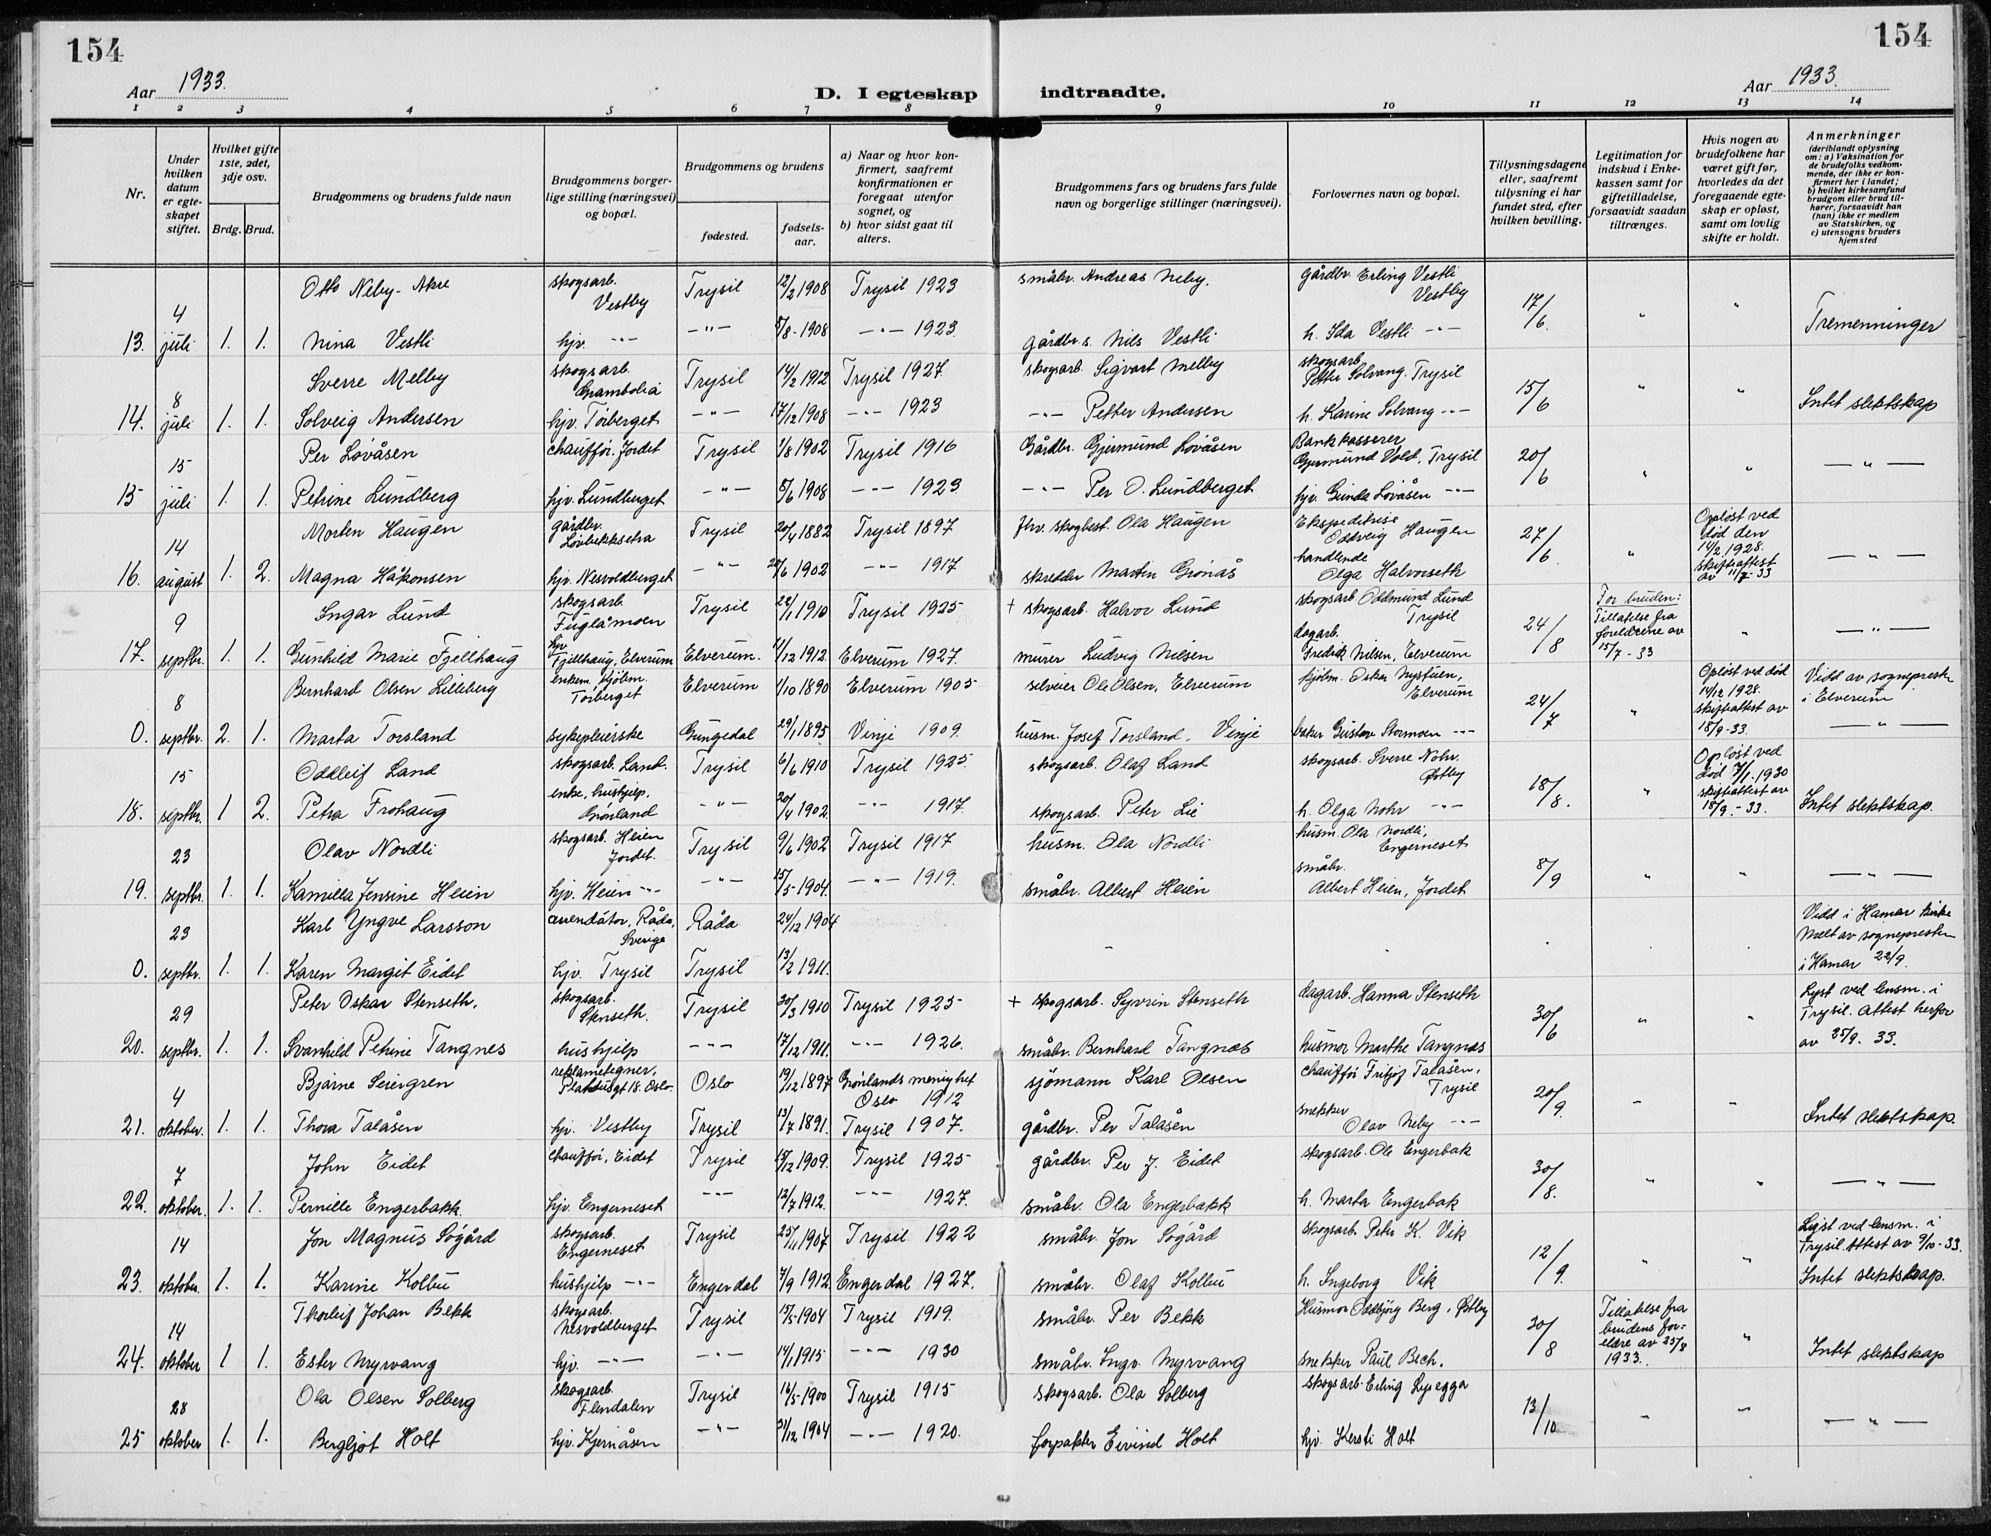 154
154
Aar 1933.
D. I egteskap indtraadte.
Aar 1933.
1 2 3 4 5 6 7 8 9 10 11 12 13 14
Nr.
Under hvilken datum er egteskapet stiftet.
Hvilket gifte 1ste, 2det, 3dje osv.
Brdg. Brud.
Brudgommens og brudens fulde navn
Brudgommens borgerlige stilling (næringsvei) og bopæl.
Brudgommens og brudens
fødested.
fødselsaar.
a) Naar og hvor konfirmert, saafremt konfirmationen er foregaat utenfor sognet, og
b) hvor sidst gaat til alters.
Brudgommens fars og brudens fars fulde navn og borgerlige stillinger (næringsvei).
Forlovernes navn og bopæl.
Tillysningsdagene eller, saafremt tillysning ei har fundet sted, efter hvilken bevilling.
Legitimation for indskud i Enkekassen samt for giftetilladelse, forsaavidt saadan tiltrænges.
Hvis nogen av brudefolkene har været gift før, hvorledes da det foregaaende egteskap er opløst, samt om lovlig skifte er holdt.
Anmerkninger (deriblandt oplysning om: a) Vaksination for de brudefolks vedkommende, der ikke er konfirmert her i landet; b) hvilket kirkesamfund brudgom eller brud tilhører, forsaavidt han (hun) ikke er medlem av Statskirken, og c) utensogns bruders hjemsted
Otto Neby-Akre skogsarb. Vestby Trysil 12/2 1908 Trysil 1923 småbr. Andreas Neby. gårdbr. Erling Vestli Vestby
13. 4 juli 1. 1. Nina Vestli hjv. -"- -"- 5/8-1908 -"- 1923 gårdbr.s. Nils Vestli h. Ida Vestli -"- 17/6. " " Tremenninger
Sverre Melby skogsarb. Grambolia Trysil 14/2 1912 Trysil 1927 skogsarb. Sigvart Melby skogsarb. Petter Solvang. Trysil
14. 8 juli 1. 1. Solveig Andersen hjv. Torberget -"- 17/12 1908 -"- 1923 -"- Petter Andersen h. Karine Solvang -"- 15/6 " " Intet slektskap
Per Løvåsen chaufför, Jordet Trysil 1/8 1902 Trysil 1916 Gårdbr. Gjermund Løvåsen Bankkasserer Gjermund Vold, Trysil
15 15 juli 1. 1. Petrine Lundberg hjv. Lundberget -"- 5/6 1908 -"- 1923 -"- Per O. Lundberget hjv. Gunda Løvåsen -"- 20/6 " " -"-
Morten Haugen gårdbr. Løvbekksetra Trysil 20/4 1882 Trysil 1897 fhv. skogbest. Ola Haugen Ekspeditrise Oddveig Haugen
16. 14 august 1. 2. Magna Håkonsen hjv. Nesvoldberget -"- 28/6 1902 -"- 1917 skredder Martin Grønås handlende Olga Halvorseth 27/6 " Opløst ved død den 14/2 1928. skifteattest av 11/7-33 -"-
Ingar Lund skogsarb. Fuglåmoen Trysil 22/1 1910 Trysil 1925 + skogsarb. Halvor Lund skogsarb. Oddmund Lund Trysil
17. 9 septbr. 1. 1. Gunhild Marie Fjellhaug hjv. Fjellhaug, Elverum Elverum. 11/12 1912. Elverum 1927. murer Ludvig Nilsen dagarb. Fredrik Nilsen, Elverum 24/8 For bruden: Tillatelse fra foreldrene av 15/7-33 " -"-
Bernhard Olsen Lilleberg enkem. hjölm. Torberget Elverum 1/10 1890 Elverum 1905 Ole Olsen, Elverum hjölm. Oskar Nystuen, Elverum
0. 8 septbr. 2. 1. Marta Torsland sykepleierske Grungedal 29/1 1895 Vinje 1909. husm. Josef Torsland. Vinje baker Gustav Stormoen -"- 24/7 " Opløst ved død 14/12 1928. skifteattest av 18/9-33. Vidd av sognepresten i Elverum -"-
Oddleif Land skogsarb. Land. Trysil 6/6 1910 Trysil 1925 skogsarb. Olaf Land skogsarb. Sverre Nohr. Østby
18. 15 septbr. 1 2. Petra Frohaug enke, hushjelp. Grønland -"- 20/4 1902. -"- 1917. skogsarb. Peter Lie h. Olga Nohr -"- 18/8. " Opløst ved død 7/1-1930 skifteattest av 15/9-33. Intet slektskap.
Olav Nordli skogsarb. Heien Jordet. Trysil 9/6 1902 Trysil 1917 husm. Ola Nordli husm. Ola Nordli, Engerneset
19. 23 septbr. 1. 1. Kamilla Jensine Heien hjv. Heien -"- -"- 15/5-1904. -"- 1919. småbr. Albert Heien småbr. Albert Heien, Jordet 8/9 " " -"-
Karl Yngve Larsson arrendator, Råda, Sverige Råda 24/12 1904
0. 23 septbr. 1. 1. Karen Margit Eidet hjv. Trysil Trysil 13/2 1911. Vidd i Hamar kirke Melt av sognepresten i Hamar 22/9.
Peter Oskar Stenseth. skogsarb. Stenseth. Trysil 30/3 1910 Trysil 1925 + skogsarb. Syvrin Stenseth dagarb. Hanna Stenseth
20. 29 septbr. 1. 1. Svanhild Petrine Tangnes hushjelp -"- 17/12 1911. -"- 1926. småbr. Bernhard Tangnæs husmor Marthe Tangnæs 30/6 " " Lyst ved lensm. i Trysil. Attest herfor av 25/9. 33.
Bjarne Seiergren reklametegner, 18. Oslo. Oslo 19/12 1897 Grønlands menighet Oslo 1912 sjömann Karl Olsen chaufför Fritjof Talåsen, Trysil
21. 4 oktober. 1. 1. Thora Talåsen hjv. Vestby Trysil 13/7 1891. Trysil 1907. gårdbr. Per Talåsen snekker Olav Neby -"- 20/9. " " Intet slektskap.
John Eidet chaufför, Eidet Trysil 15/12 1909. Trysil 1925 gårdbr. Per J. Eidet skogsarb. Ole Engerbak
22. 7 oktober. 1. 1. Pernille Engerbakk. hjv. Engerneset -"- 12/7 1912. -"- 1927. småbr. Ola Engerbakk h. Marta Engerbak 30/8. " " -"-
Jon Magnus Søgård skogsarb. Engerneset Trysil 25/11 1907 Trysil 1922 småbr. Jon Søgård skogsarb. Peter K. Vik
23. 14 oktober. 1. 1. Karine Kolbu hushjelp -"- Engerdal 7/9 1912. Engerdal 1927. småbr. Olaf Kolbu h. Ingeborg Vik 12/9. " " Lyst ved lensm. i Trysil. Attest av 9/10-33. Intet slektskap.
Thorleif Johan Bekk skogsarb. Nesvoldberget Trysil 15/5-1904 Trysil 1919. småbr. Per Bekk Husmor Oddbjörg Berg, Østby
24. 14 oktober 1 1. Ester Myrvang hjv. -"- -"- 14/1 1915 -"- 1930 småbr. Ingv. Myrvang snekker Paul Bech. 30/8 Tillatelse fra brudens foreldre av 25/8 1933. " Intet slektskap
Ola Olsen Solberg skogsarb. Flendalen Trysil 16/5-1900 Trysil 1915 skogsarb. Ola Solberg skogsarb. Erling Lysegga
25 28 oktober 1. 1. Bergljot Holt hjv. Kjernåsen -"- 31/12 1904 -"- 1920. forpakter Eivind Holt hjv. Kersti Holt 13/10 " " -"-